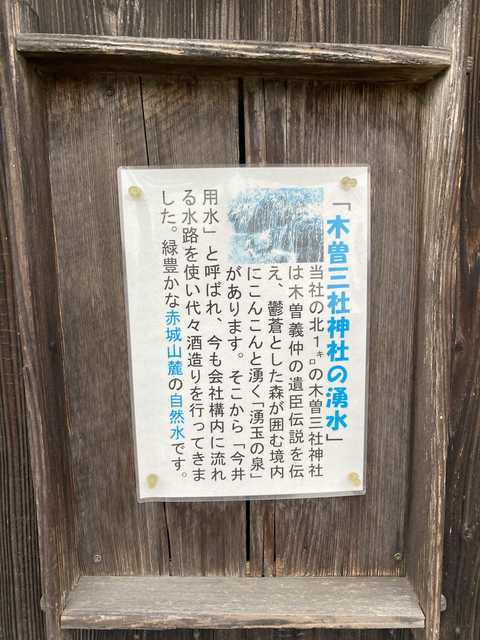 「木曽三社神社の湧水」
当社の北1㌔の木曽三社神社
は木曽義仲の遺臣伝説を伝
え、鬱蒼とした森が囲む境内
にこんこんと湧く「湧玉の泉」
があります。そこから「今井
用水」と呼ばれ、今も会社構内に流れ
る水路を使い代々酒造りを行ってきま
した。緑豊かな赤城山麓の自然水です。